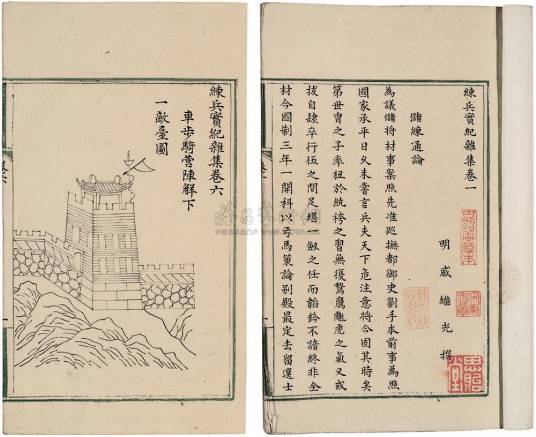 練兵實紀雜集卷一
明 戚繼光 撰
儲練通論
為議儲將材事案照先准巡撫都御史劉手本前事為照
國家承平日久未嘗言兵夫天下危注意將今國其時矣
第世胄之子率狃於紈袴之習無復鷙鷹虓虎之氣又或
拔自隸卒行伍之間足堪一劍之任而韜鈐不諳終非全
材今國制三年一開科以弓馬策論別殿最定去留選士
練兵實紀雜集卷六
車步騎營陣解下
一敵臺圖